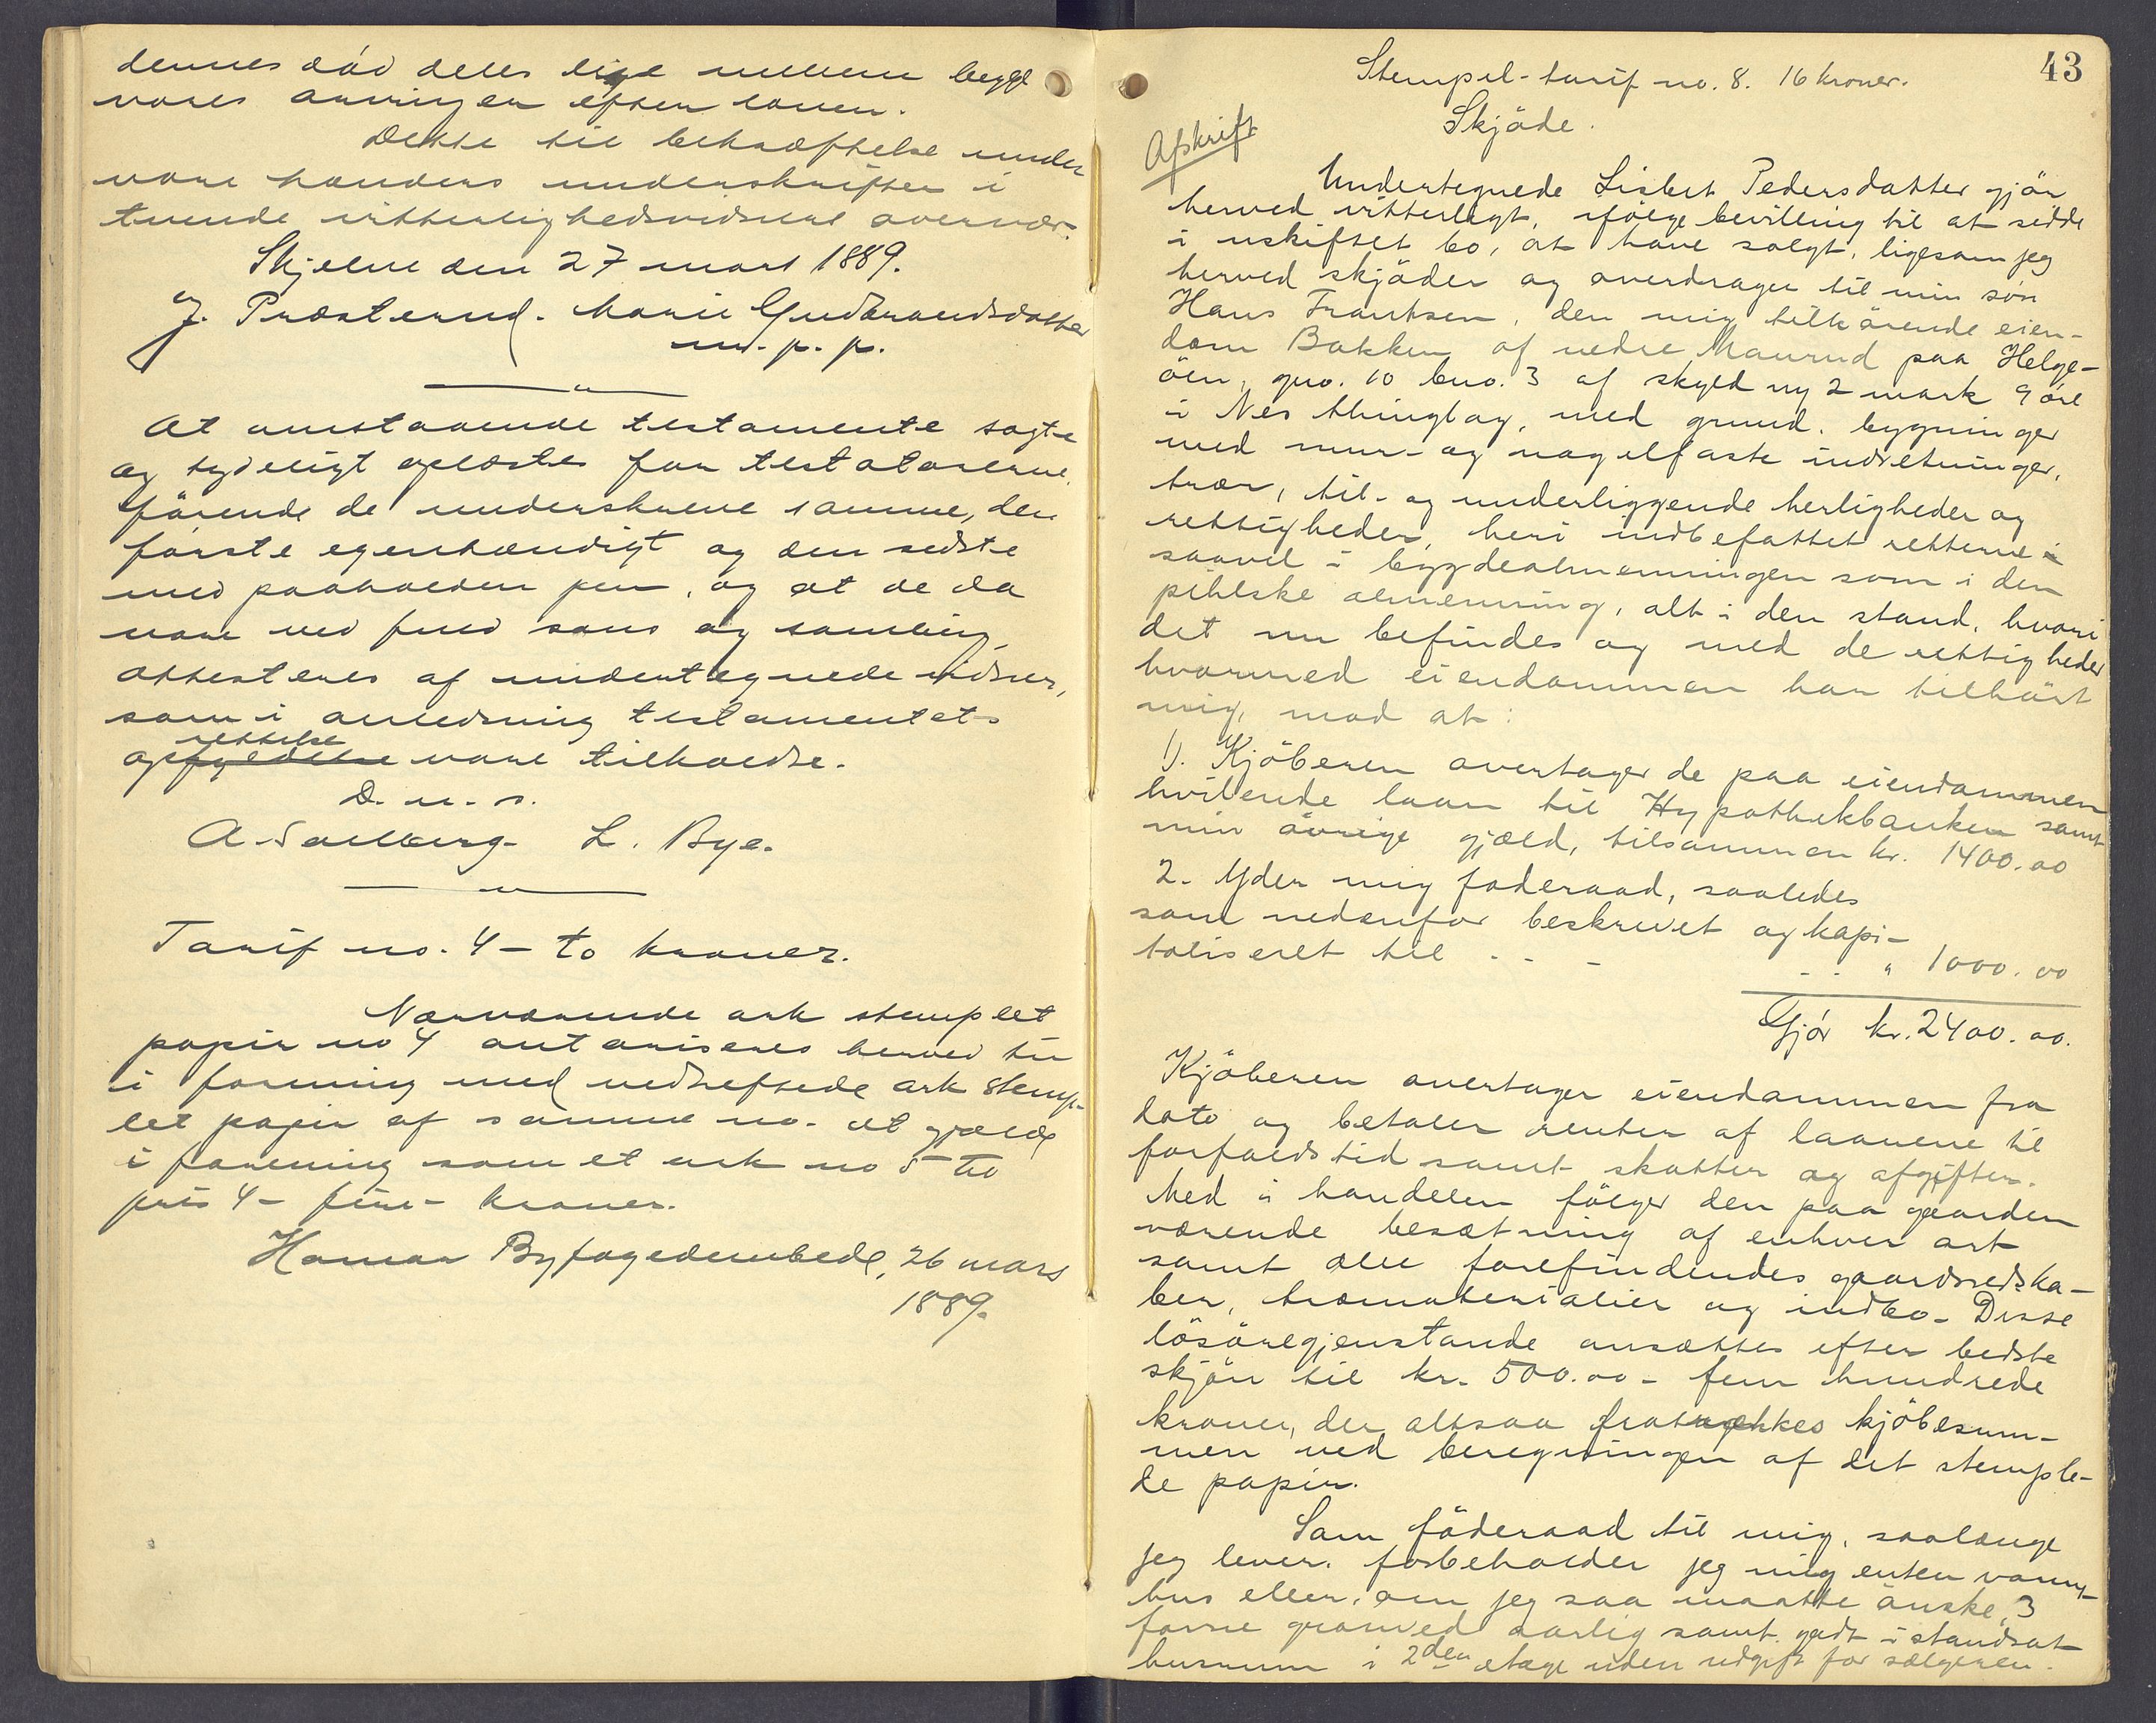 dennes död deles lige mellem begge
vores arvinger efter loven.
Dette til bekræftelse under
vore hænders underskrifter i
tvende vitterlighedsvidners overvær.
Skjelve den 27 mars 1889.
J. Præsterud. Marie Gudbrandsdatter
m. p. p.
At omstaaende testamente sagte
og tydeligt oplæstes for testatorerne,
förend de underskreve samme, den
förste egenhændigt og den sidste
med paaholden pen, og at de da
vare ved fuld sans og samling,
attesteres af undertegnede vidner,
som i anledning testamentets
rettelse
opfyldelse vare tilkaldte.
D. u. s.
A. Solberg. L. Bye.
Tarif no. 4 - to kroner.
Nærværende ark stemplet
papir no 4 autoriseres herved til
i forening med vedheftede ark stemp-
let papir af samme no. at gjælde
i forening som et ark no 5 til
pris 4 - fire - kroner.
Hamar Byfogedembede, 26 mars
1889.
43
Stempel-tarif no. 8. 16 kroner.
Skjöde.
Afskrift
Undertegnede Lisbet Pedersdatter gjör
herved vitterligt, ifölge bevilling til at sidde
i uskiftet bo, at have solgt, ligesom jeg
herved skjöder og overdrager til min sön
Hans Frantsen, den mig tilhörende eien-
dom Bakken af nedre Maurud paa Helge-
öen, gno. 10 bno. 3 af skyld ny 2 mark 9 öre
i Nes thinglag, med grund, bygninger
med mur- og nagelfaste indretninger,
træer, til- og underliggende herligheder og
rettigheder, heri indbefattet retterne i
saavel i bygdealmenningen som i den
pihlske almenning, alt i den stand, hvori
det nu befindes og med de rettigheder
hvormed eiendommen har tilhört
mig, mod at:
1). Kjöberen overtager de paa eiendommen
hvilende laan til Hypothekbanken samt
min övrige gjæld, tilsammen kr. 1400.00
2. Yder mig föderaad, saaledes
som nedenfor beskrevet og kapi-
taliseret til - - - - - " 1000.00
Gjör kr. 2400.00.
Kjöberen overtager eiendommen fra
dato og betaler renter af laanene til
forfaldstid samt skatter og afgifter.
Med i handelen fölger den paa gaarden
værende besætning af enhver art
samt alle forefindendes gaardsredska-
ber, træmaterialier og indbo. Disse
lösöregjenstande ansættes efter bedste
skjön til kr. 500.00 - fem hundrede
kroner, der altsaa fratrækkes kjöbesum-
men ved beregningen af det stemple-
de papir.
Som föderaad til mig, saalænge
jeg lever, forbeholder jeg mig enten varmt
hus eller, om jeg saa maatte önske, 3
favne granved aarlig samt godt istandsat
husrum i 2den etage uden udgift for sælgeren.